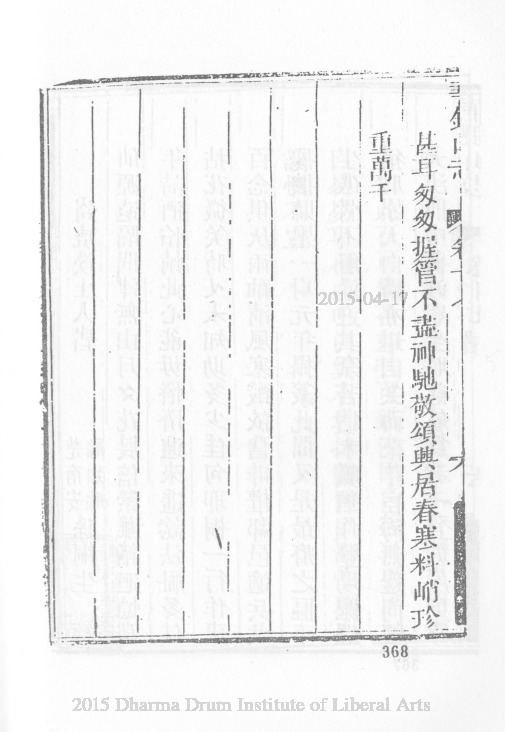 甚耳匆匆握管不盡神馳敬頌興居春寒料峭珍
重萬千
2015-04-17
368
2015 Dharma Drum Institute of Liberal Arts